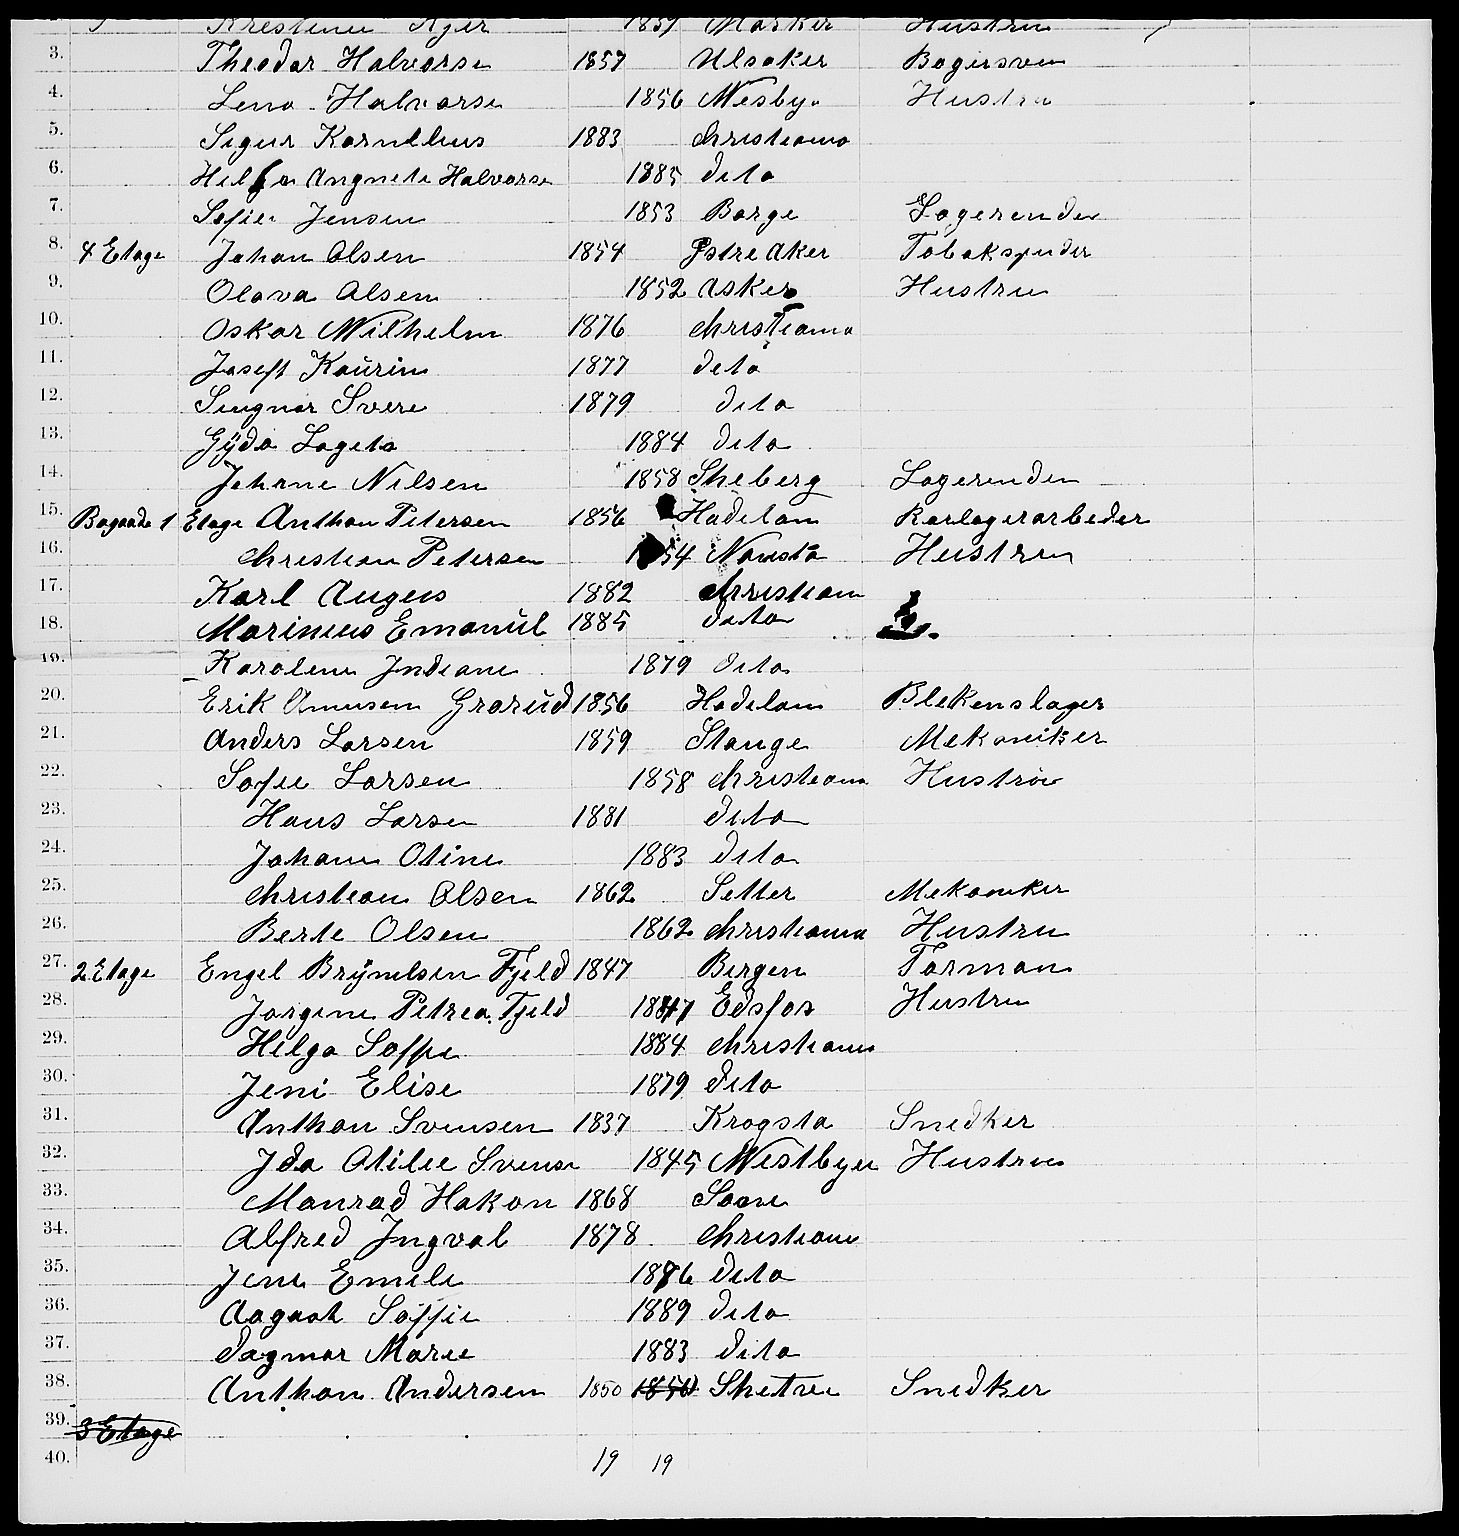 Kristine Kjer 1859 Marker Hustru
3. Theodor Halvorse 1857 Ulsaker Bagersven
4. Lena Halvorse 1856 Nesbye Hustru
5. Sigur Kornelius 1883 Christiania
6. Helga Angnete Halvorse 1885 dito
7. Sofie Jensen 1853 Borge Logerende
8. 4 Etage Johan Olsen 1854 Østre Aker Tobakspinder
9. Olava Olsen 1852 Asker Hustru
10. Oskar Wilhelm 1876 Christiania
11. Joseft Kaurin 1877 dito
12. Singnar Svere 1879 dito
13. Gÿda Lageta 1884 dito
14. Johane Nilsen 1858 Skeberg Logerenden
15. Bagaarde 1 Etage Anthon Petersen 1856 Hadelan Korlagerarbeder
16. Christian Petersen 1854 Navista Hustru
17. Karl August 1882 Christian
18. Marinius Emanuel 1885 dito
19. Karoline Indiane 1879 dito
20. Erik Amunsen Grorud 1856 Hadelan Blekenslager
21. Anders Larsen 1859 Stange Mekaniker
22. Sofie Larsen 1858 Christiania Hustru
23. Hans Larsen 1881 dito
24. Johane Otine 1883 dito
25. Christian Olsen 1862 Setter Mekaniker
26. Berte Olsen 1862 Christiania Hustru
27. 2 Etage Engel Brÿnelsen Fjeld 1847 Bergen Forman
28. Jorgine Petrea Fjeld 1847 Eidsfos Hustru
29. Helga Soffie 1884 Christiania
30. Jeni Elise 1879 dito
31. Anthon Svensen 1837 Krogsta Snedker
32. Ida Otilie Svense 1845 Westbyen Hustru
33. Monrad Hakon 1868 Soon
34. Alfred Ingval 1878 Christiani
35. Jeni Emeli 1876 dito
36. August Soffie 1889 dito
37. Dagmar Marie 1883 dito
38. Anthon Andersen 1850 1850 Sketve Snedker
39. 3 Etage
40. 19 19